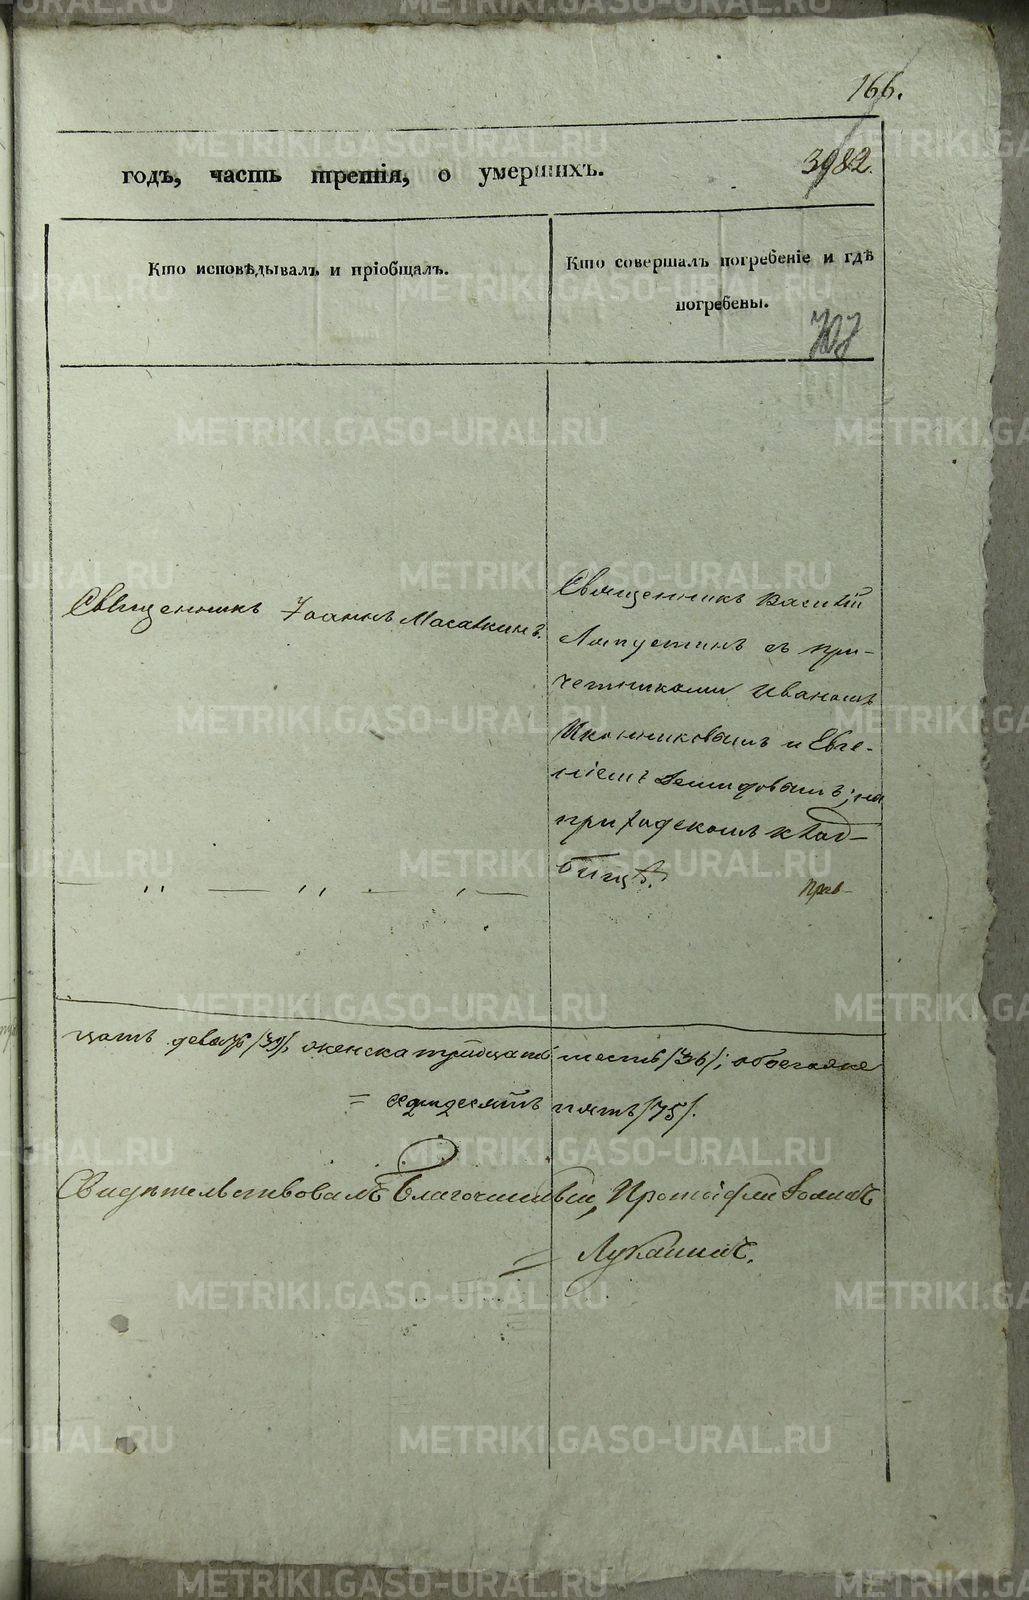 166.
годъ, часть третія, о умершихъ.
3982.
Кто исповѣдывалъ и пріобщалъ.
Кто совершалъ погребеніе и гдѣ
погребены.
707
Священникъ Іоаннъ Масаткинъ.
Священникъ Василій
Лапустинъ съ при-
четниками Иваномъ
Иконниковымъ и Евге-
ніемъ Демидовымъ; на
приходскомъ клад-
бищѣ.
цать девять /39/, женска тридцать шесть /36/; обоего же
= семдесятъ пять /75/.
Свидѣтельствовалъ Благочинный, Протоіерей
Лукашъ.
METRIKI.GASO-URAL.RU